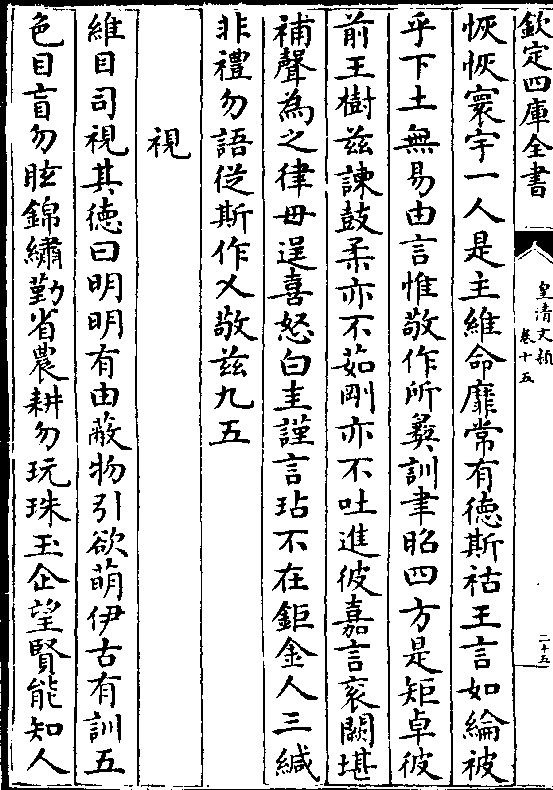 欽定四庫全書
皇清文穎
卷十五
二十五
恢恢寰宇一人是主維命靡常有德斯祜王言如綸被
乎下土無易由言惟敬作所彝訓聿昭四方是矩卓彼
前王樹兹諫鼓柔亦不茹剛亦不吐進彼嘉言衮闕堪
補聲為之律毋逞喜怒白圭謹言玷不在鉅金人三緘
非禮勿語從斯作乂敬兹九五
視
維目司視其德曰明明有由蔽物引欲萌伊古有訓五
色目盲勿眩錦繡勤省農耕勿玩珠玉企望賢能知人